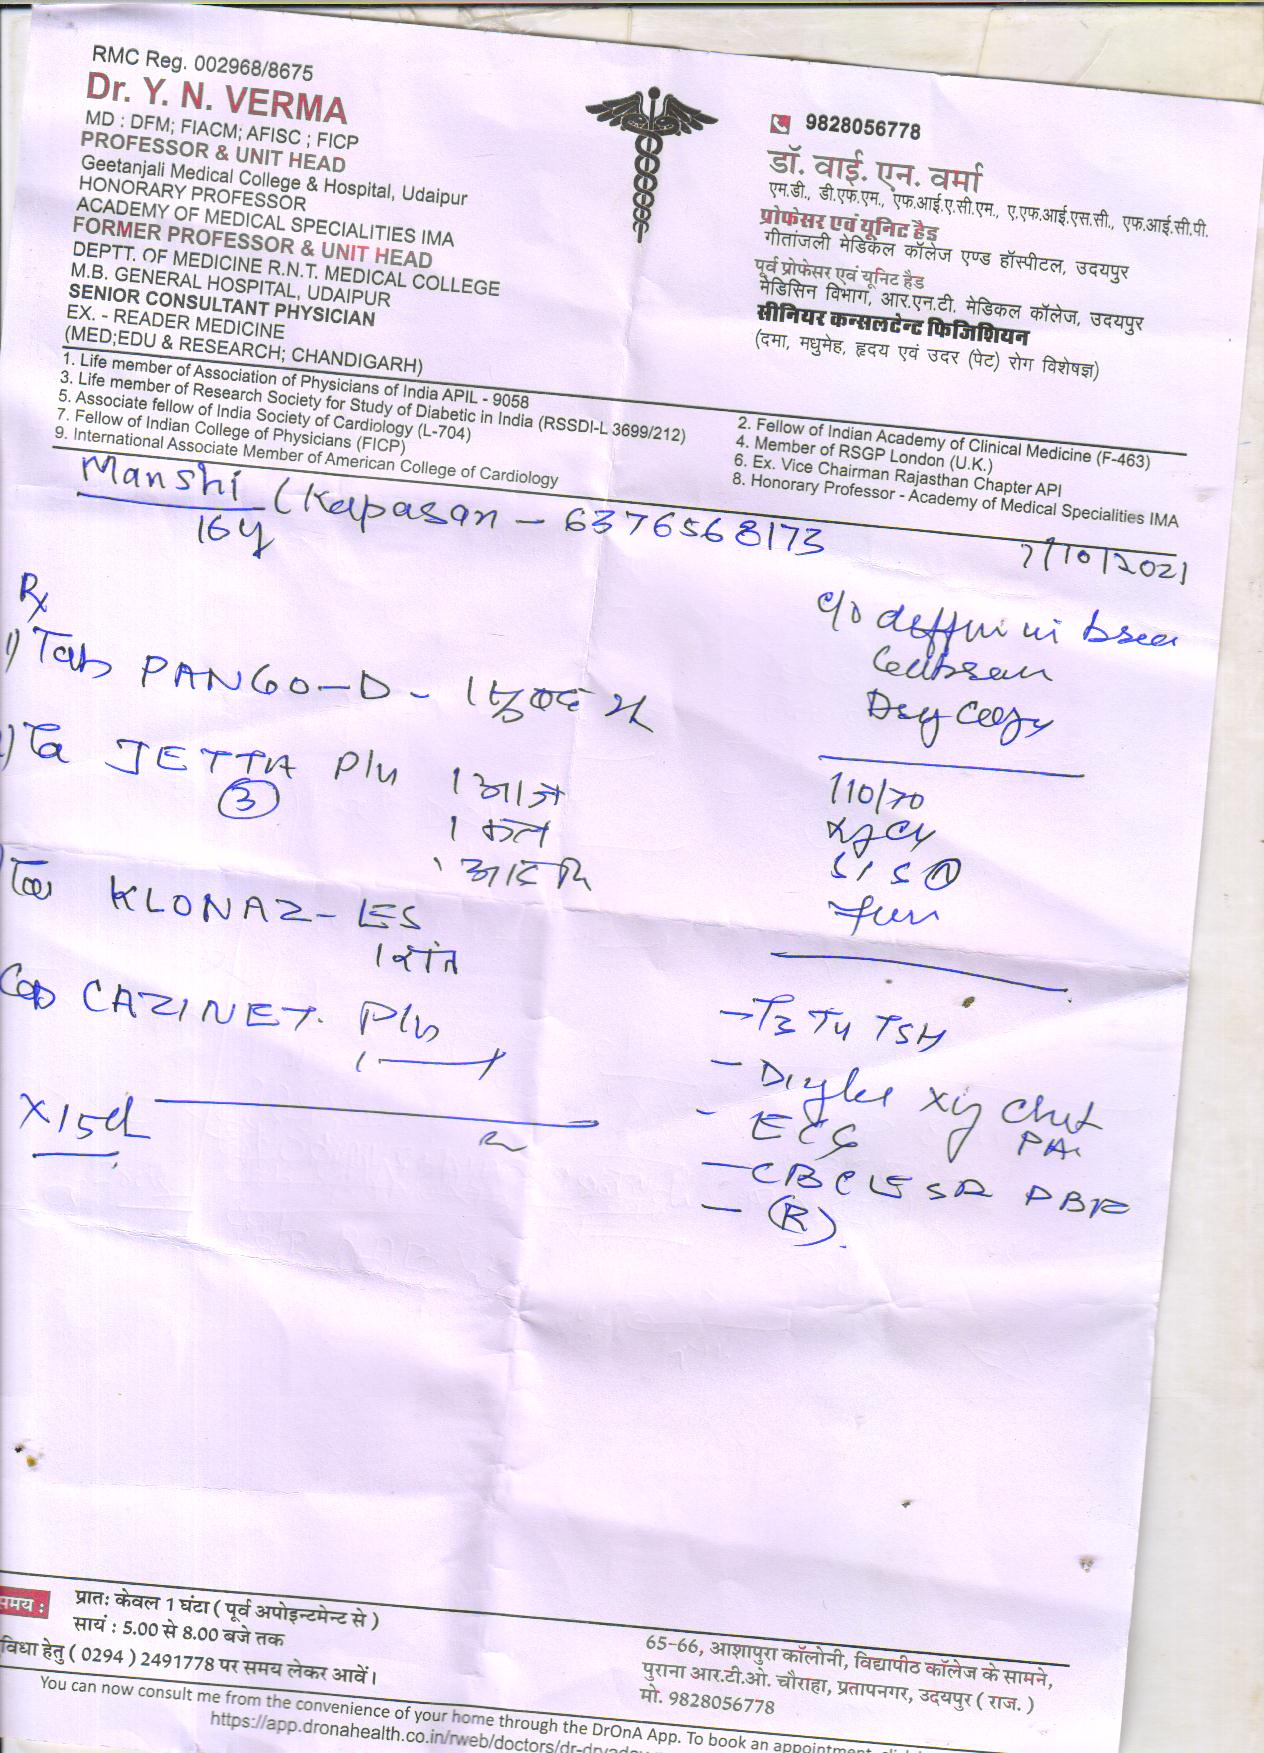 RMC Reg. 002968/8675
Dr. Y. N. VERMA
MD : DFM; FIACM; AFISC ; FICP
PROFESSOR & UNIT HEAD
Geetanjali Medical College & Hospital, Udaipur
HONORARY PROFESSOR
ACADEMY OF MEDICAL SPECIALITIES IMA
FORMER PROFESSOR & UNIT HEAD
DEPTT. OF MEDICINE R.N.T. MEDICAL COLLEGE
M.B. GENERAL HOSPITAL, UDAIPUR
SENIOR CONSULTANT PHYSICIAN
EX. - READER MEDICINE
(MED;EDU & RESEARCH; CHANDIGARH)
9828056778
डॉ. वाई. एन. वर्मा
एम.डी., डी.एफ.एम., एफ.आई.ए.सी.एम., ए.एफ.आई.एस.सी., एफ.आई.सी.पी.
प्रोफेसर एवं यूनिट हैड
गीतांजली मेडिकल कॉलेज एण्ड हॉस्पीटल, उदयपुर
पूर्व प्रोफेसर एवं यूनिट हैड
मेडिसिन विभाग, आर.एन.टी. मेडिकल कॉलेज, उदयपुर
सीनियर कन्सलटेन्ट फिजिशियन
(दमा, मधुमेह, हृदय एवं उदर (पेट) रोग विशेषज्ञ)
1. Life member of Association of Physicians of India APIL - 9058
2. Fellow of Indian Academy of Clinical Medicine (F-463)
3. Life member of Research Society for Study of Diabetic in India (RSSDI-L 3699/212)
4. Member of RSGP London (U.K.)
5. Associate fellow of India Society of Cardiology (L-704)
6. Ex. Vice Chairman Rajasthan Chapter API
7. Fellow of Indian College of Physicians (FICP)
8. Honorary Professor - Academy of Medical Specialities IMA
9. International Associate Member of American College of Cardiology
Manshi (Kapasan - 6376568173
16y
7/10/2021
Rx
1) Tab PAN60-D - 1
JETTA Plus 1 आज
3
1 कल
KLONAZ-ES
1 रात
Cap CAZINET. Plus
1
X15d
c/o
Dry
110/70
- T3 T4 TSH
- ECG
PA
- CBC ESR PBF
- (R).
समय :
प्रातः केवल 1 घंटा ( पूर्व अपोइन्टमेन्ट से )
सायं : 5.00 से 8.00 बजे तक
विधा हेतु ( 0294 ) 2491778 पर समय लेकर आवें।
65-66, आशापुरा कॉलोनी, विद्यापीठ कॉलेज के सामने,
पुराना आर.टी.ओ. चौराहा, प्रतापनगर, उदयपुर ( राज. )
मो. 9828056778
You can now consult me from the convenience of your home through the DrOnA App. To book an appointment,
https://app.dronahealth.co.in/rweb/doctors/